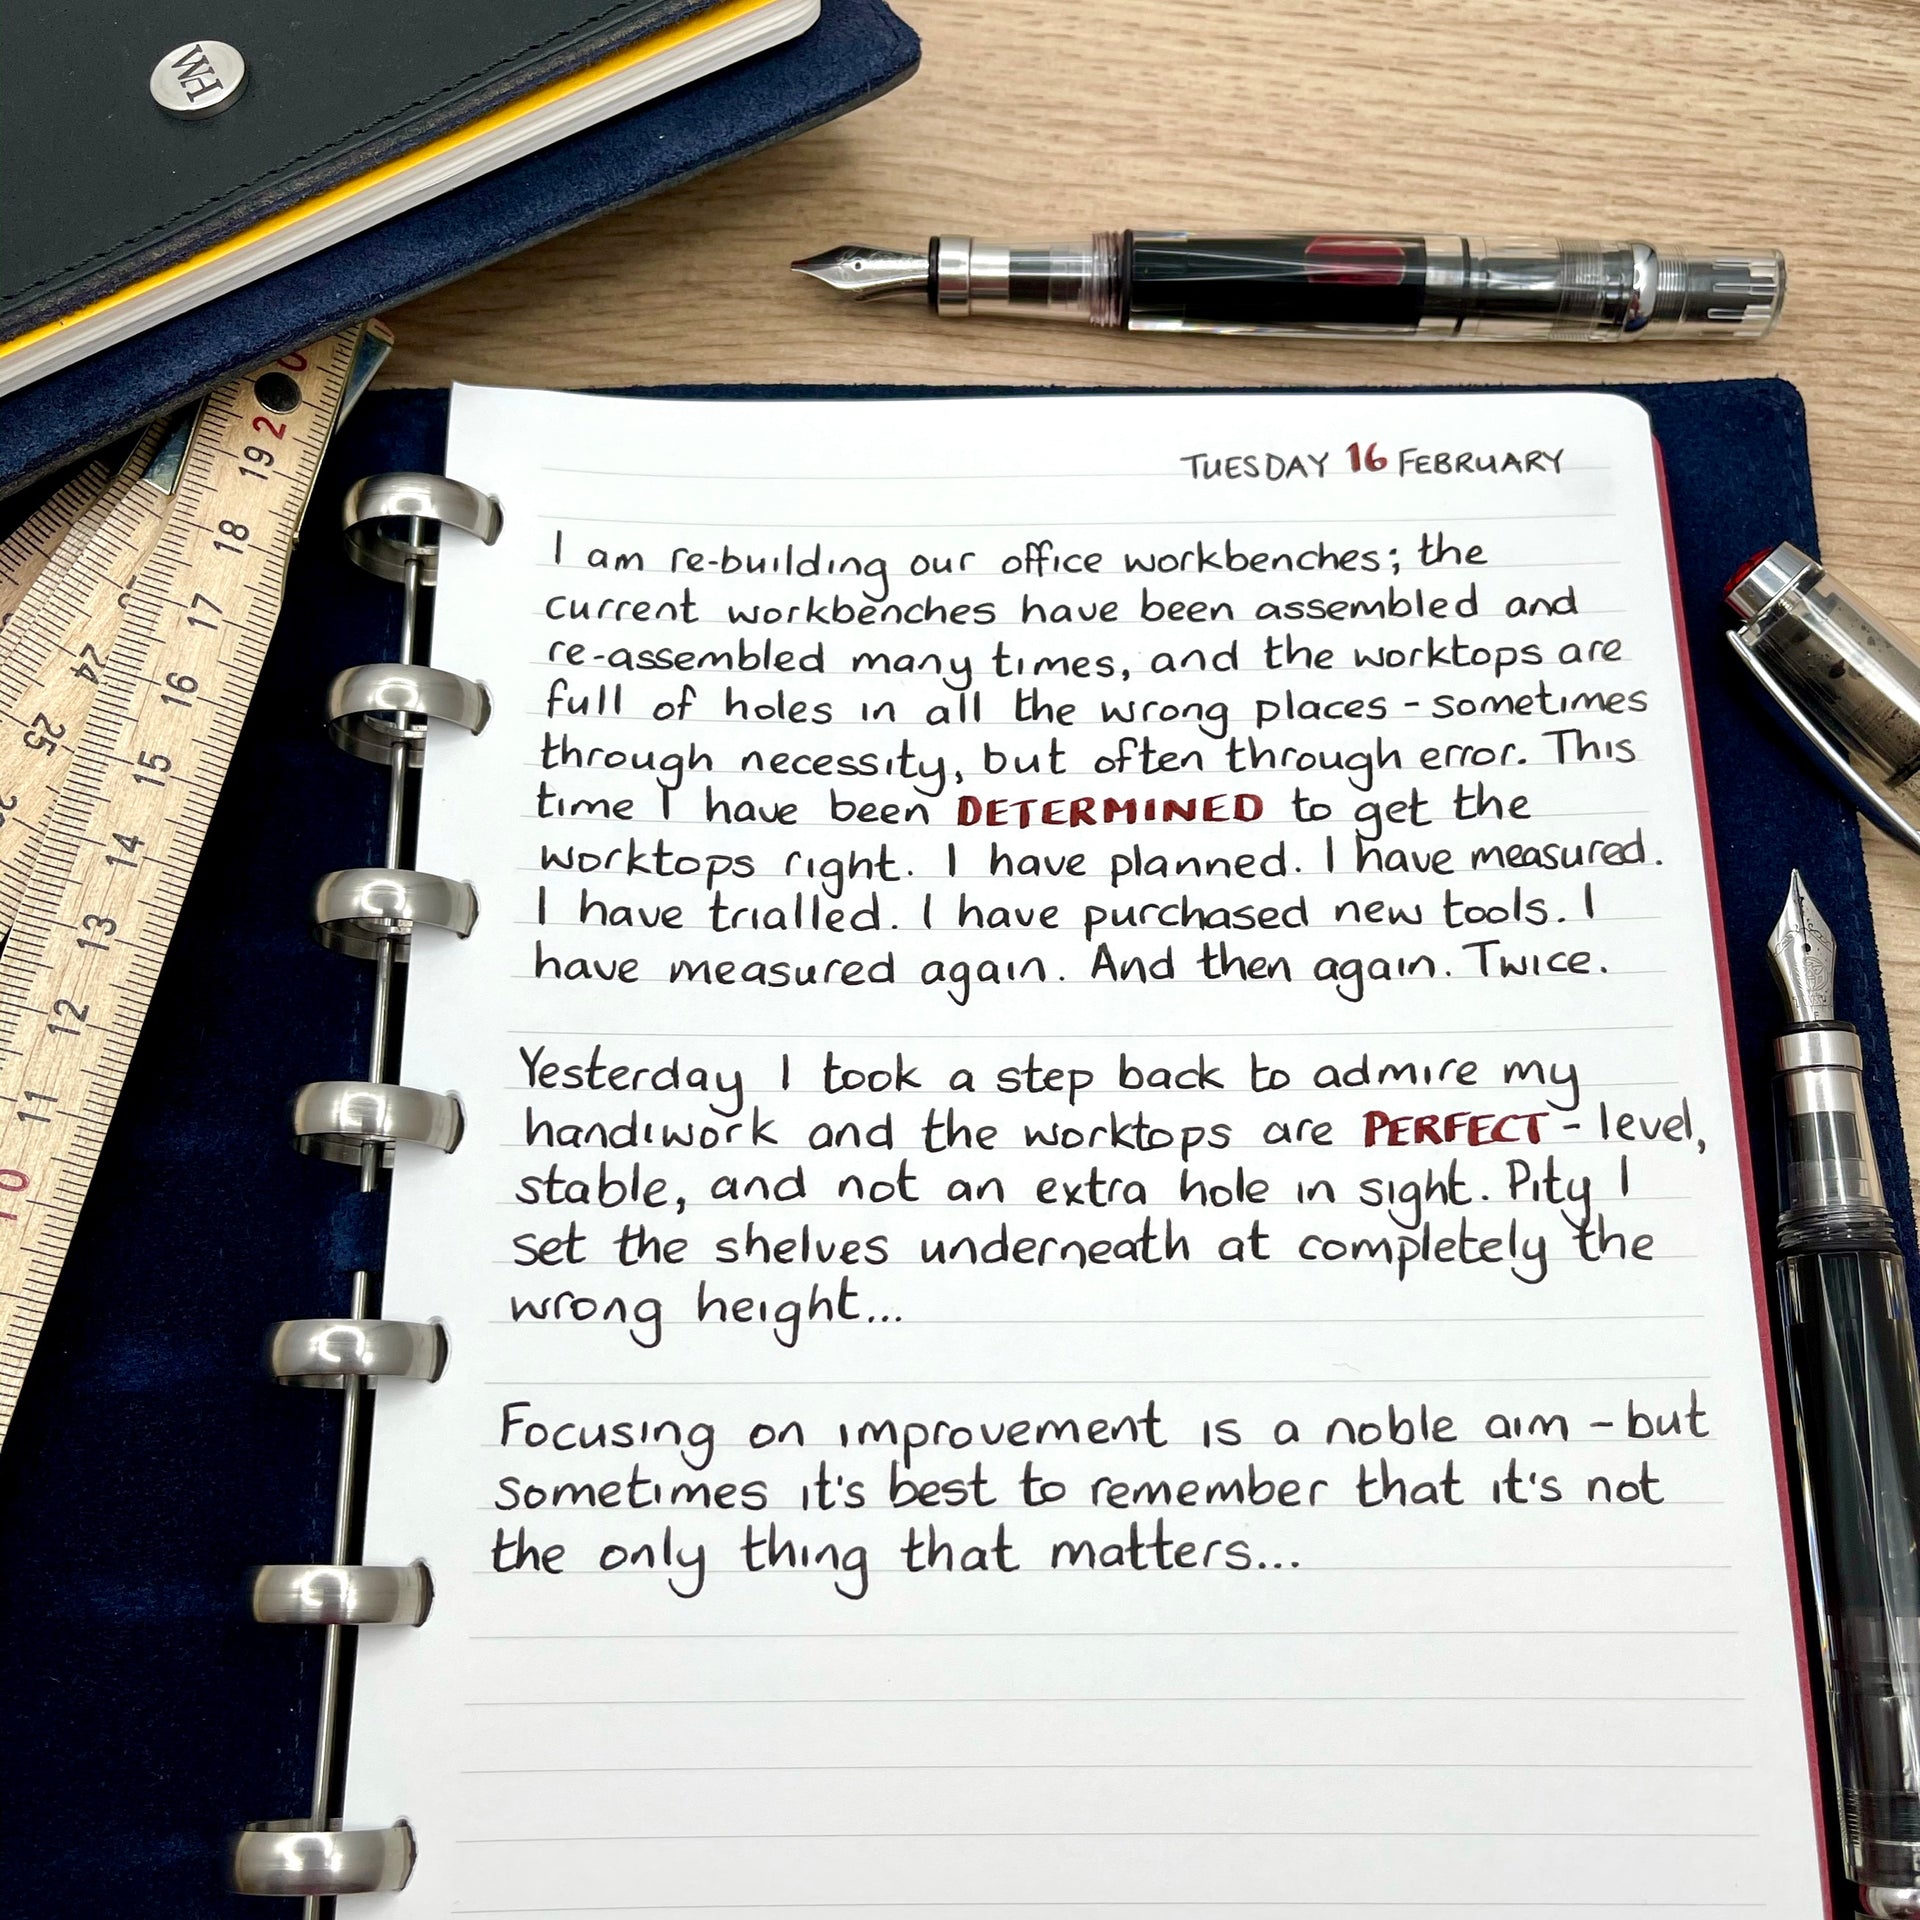 WH
TUESDAY 16 FEBRUARY
I am re-building our office workbenches; the
current workbenches have been assembled and
re-assembled many times, and the worktops are
full of holes in all the wrong places - sometimes
through necessity, but often through error. This
time I have been DETERMINED to get the
worktops right. I have planned. I have measured.
I have trialled. I have purchased new tools. I
have measured again. And then again. Twice.
Yesterday I took a step back to admire my
handiwork and the worktops are PERFECT - level,
stable, and not an extra hole in sight. Pity I
set the shelves underneath at completely the
wrong height...
Focusing on improvement is a noble aim - but
sometimes it's best to remember that it's not
the only thing that matters...
20
19
18
17
16
15
14
13
12
11
10
24
25